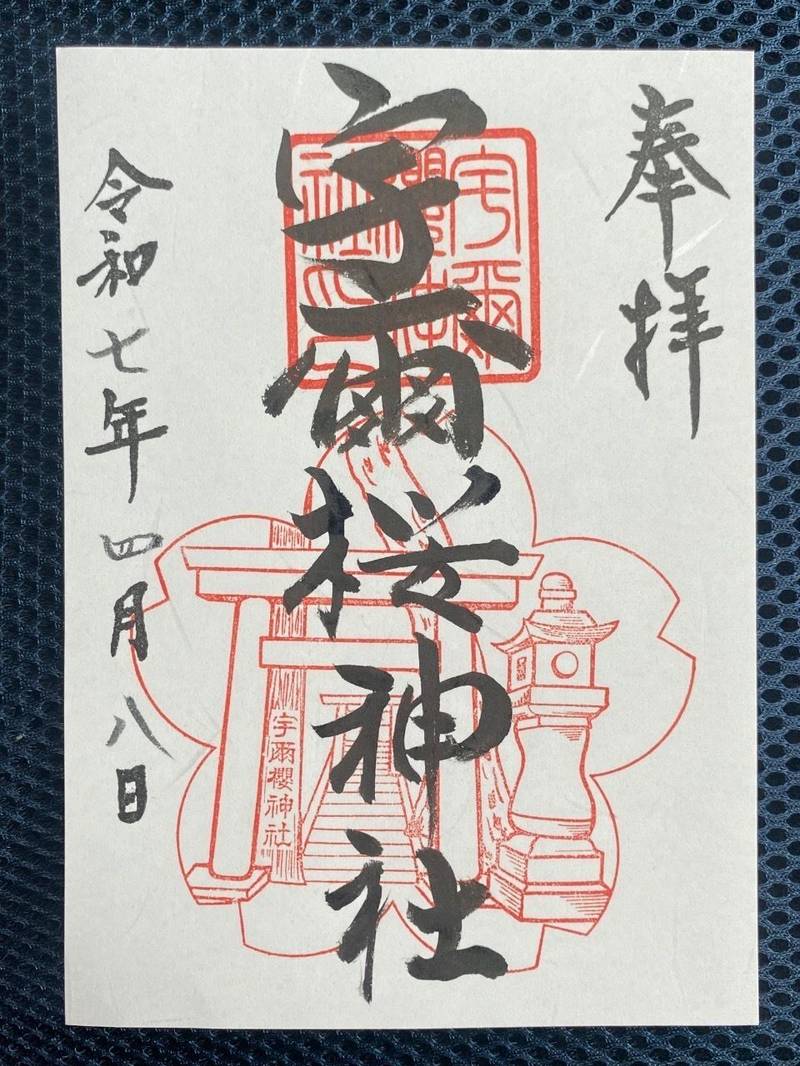 奉拝
宇爾桜神社
宇爾
櫻神
社
宇爾櫻神社
令和七年四月八日